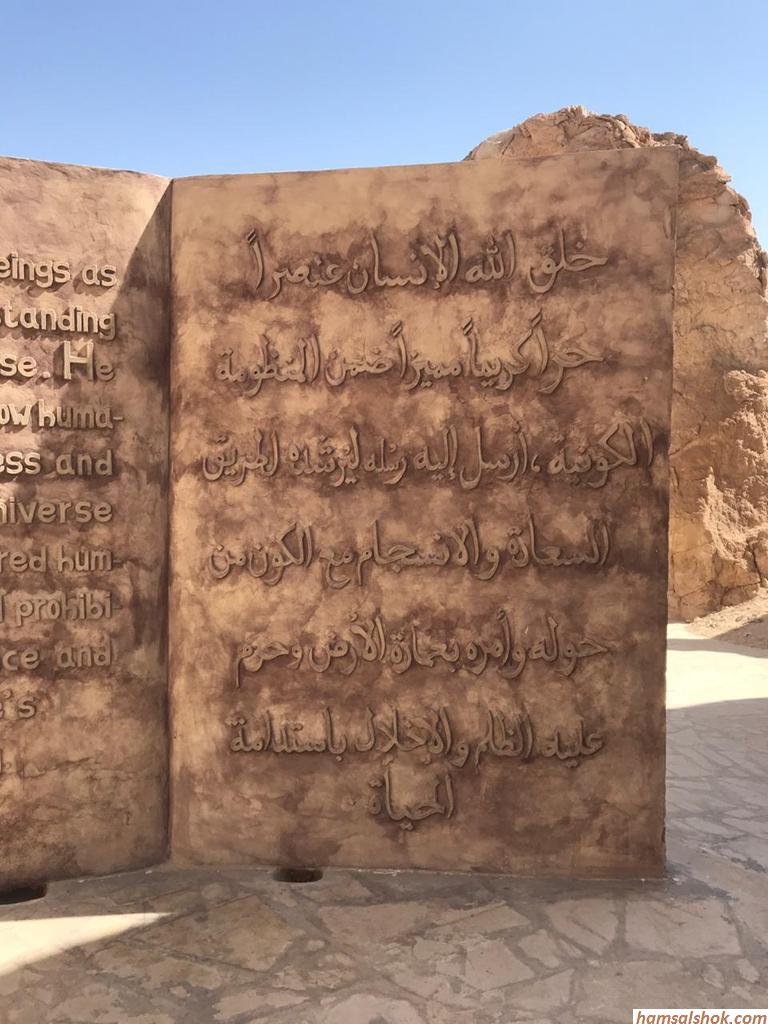 eings as
tanding
se. He
ow huma-
ess and
niverse
red hum-
l prohibi-
ce and
e's
خلق الله الإنسان عنصراً
حراً كريماً مميزاً ضمن المنظومة
الكونية ، أرسل إليه رسله ليرشده لطريق
السعادة والانسجام مع الكون من
حوله وأمره بعمارة الأرض وحرم
عليه الظلم والإخلال باستدامة
الحياة
hamsalshok.com